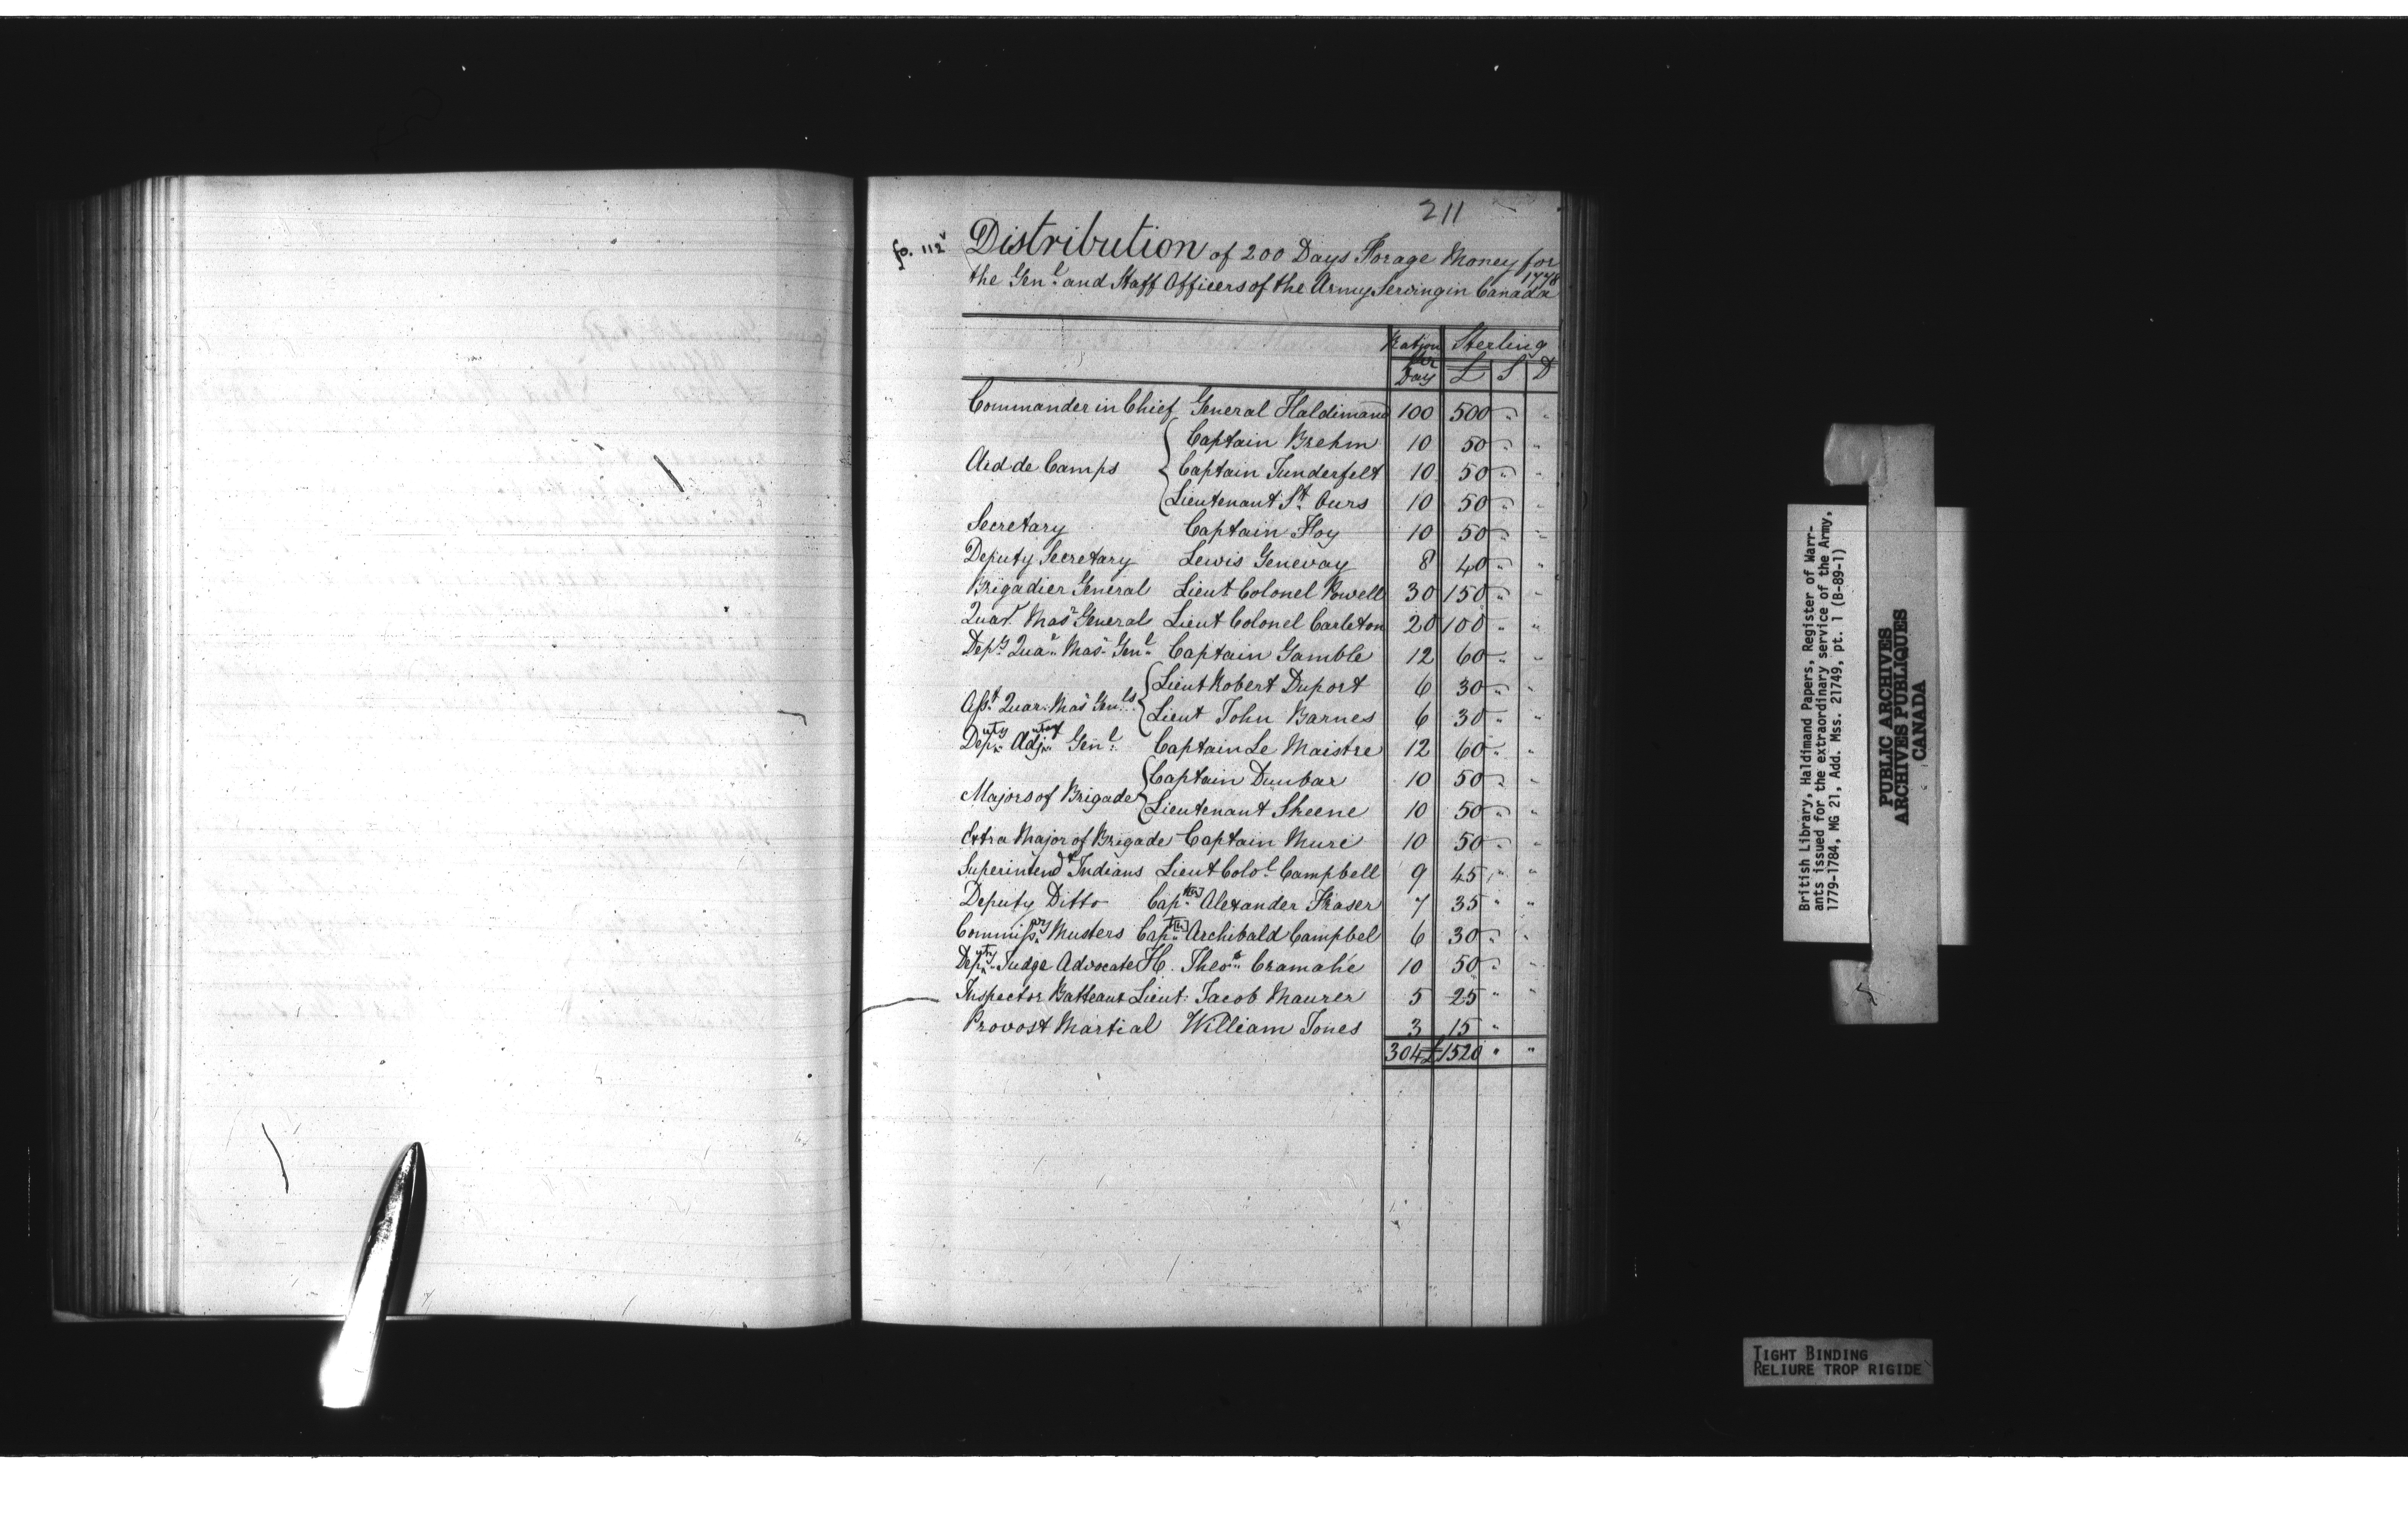 211
fo. 112v
Distribution of 200 Days Forage Money for
1778
the Genl. and Staff Officers of the Army Serving in Canada
Ration Per Day Sterling
£ S D
Commander in Chief General Haldimand 100 500 " "
Captain Brehm 10 50 " "
Aid de Camps Captain Tunderfelt 10 50 " "
Lieutenant St. Ours 10 50 " "
Secretary Captain Foy 10 50 " "
Deputy Secretary Lewis Genevay 8 40 " "
Brigadier General Lieut Colonel Powell 30 150 " "
Quar. Masr. General Lieut Colonel Carleton 20 100 " "
Depy. Quar. Masr. Genl. Captain Gamble 12 60 " "
Lieut Robert Duport 6 30 " "
Asst. Quar. Mas. Genls. Lieut John Barnes 6 30 " "
Deputy Adjutant Genl. Captain Le Maistre 12 60 " "
Captain Dunbar 10 50 " "
Majors of Brigade Lieutenant Skeene 10 50 " "
Extra Major of Brigade Captain Mure 10 50 " "
Superintendt Indians Lieut Colol. Campbell 9 45 " "
Deputy Ditto Capt. Alexander Fraser 7 35 " "
Commissary Musters Capt. Archibald Campbel 6 30 " "
Deputy Judge Advocate H. Theos. Cramahé 10 50 " "
Inspector Batteaux Lieut: Jacob Maurer 5 25 " "
Provost Martial William Jones 3 15 "
304 £1520 " "
British Library, Haldimand Papers, Register of Warr-
ants issued for the extraordinary service of the Army,
1779-1784, MG 21, Add. Mss. 21749, pt. 1 (B-89-1)
PUBLIC ARCHIVES
ARCHIVES PUBLIQUES
CANADA
TIGHT BINDING
RELIURE TROP RIGIDE